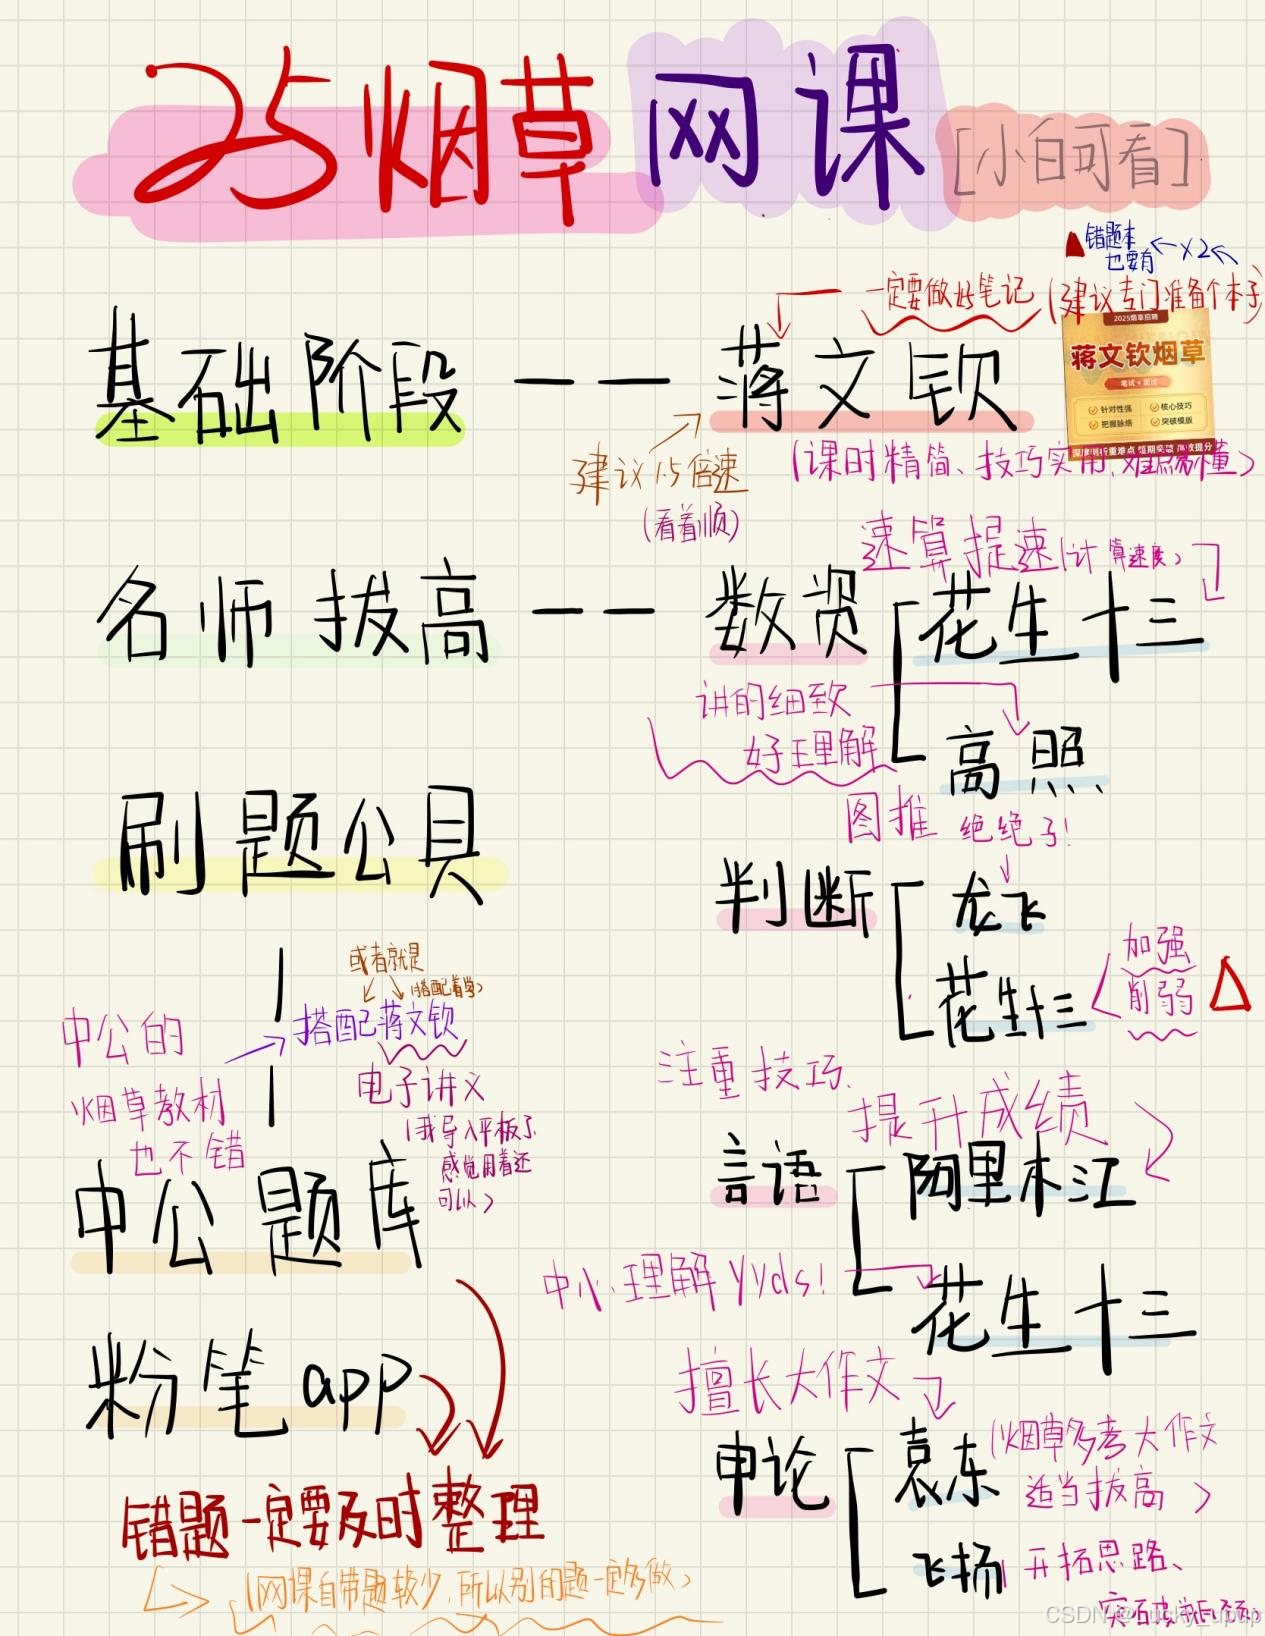 25烟草网课[小白可看]
错题本
也要有
×2
一定要做好笔记(建议专门准备个本子
2025烟草招聘
蒋文钦烟草
笔试+面试
针对性强
核心技巧
把握脉络
突破模版
短期突破 高效提分
基础阶段——蒋文钦
建议1.5倍速
(看着顺)
(课时精简、技巧实用,难点易懂)
速算提速(计算速度)
名师拔高——数资
花生十三
讲的细致
好理解
高照
刷题公具
图推 绝绝子!
判断
龙飞
花生十三
加强
削弱
或者就是
(搭配着学)
中公的
烟草教材
也不错
搭配蒋文钦
电子讲义
(我导入平板了
感觉用着还
可以)
注重技巧、
提升成绩
言语
阿里木江
中公题库
中心理解yyds!
花生十三
粉笔app
擅长大作文
申论
袁东
(烟草多考大作文
适当拔高)
飞扬
(开拓思路、
错题一定要及时整理
(网课自带题较少,所以别的题一定多做)
CSDN